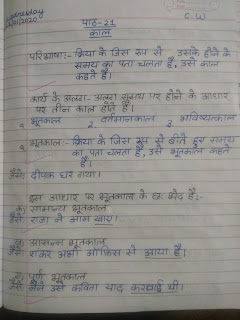 Wednesday
पाठ-21
C.W
काल
परिभाषा:- क्रिया के जिस रूप से उसके होने के
समय का पता चलता है, उसे काल
कहते हैं।
कार्य के अलग-अलग समय पर होने के आधार
पर तीन काल होते हैं।
१ भूतकाल २. वर्तमानकाल ३ भविष्यतकाल
१ भूतकाल:- क्रिया के जिस रूप से बीते हुए समय
का पता चलता है, उसे भूतकाल कहते
हैं।
जैसे: दीपक घर गया।
इस आधार पर भूतकाल के छः भेद हैं:-
क) सामान्य भूतकाल
जैसे: राजा ने आम खाए।
ख) आसन्न भूतकाल
जैसे: शंकर अभी ऑफिस से आया है।
ग) पूर्ण भूतकाल
जैसे: मैंने उसे कविता याद करवाई थी।